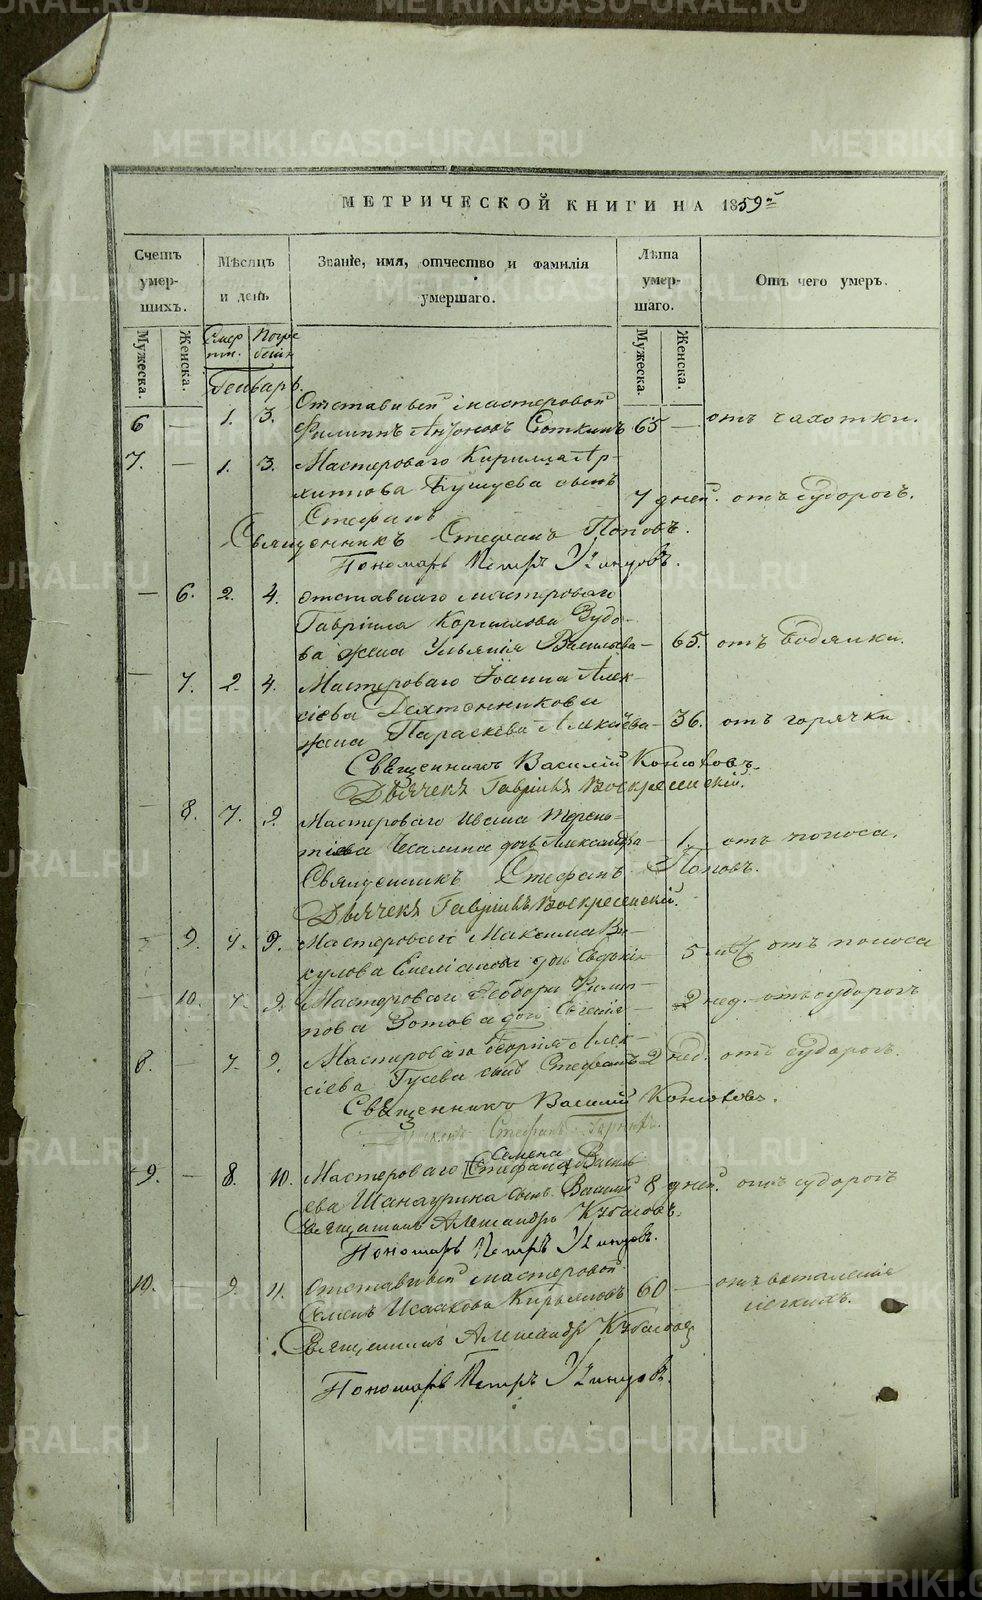 МЕТРИЧЕСКОЙ КНИГИ НА 1859й
Счетъ умер-шихъ.
Мѣсяцъ и день
Званіе, имя, отчество и фамилія умершаго.
Лѣта умер-шаго.
Отъ чего умеръ.
Мужеска. Женска. Смер ти. Погре бенія Мужеска. Женска.
Генварь.
Отставный мастеровой
6 — 1. 3. Филиппъ Антоновъ 65 — отъ чахотки.
7. — 1. 3. Мастероваго Кирилла Ар-
хипова сынъ
Стефанъ 7 дней. отъ судорогъ.
Священникъ Стефанъ Поповъ.
Пономарь Петръ
— 6. 2. 4. отставнаго мастероваго
Гавріила Корнилова Зудо-
ва жена Ульянія Васильева — 65. отъ водянки.
— 7. 2. 4. Мастероваго Іоанна Алек-
сіева
жена Параскева Алексіева — 36. отъ горячки.
Священникъ Василій Конюховъ.
Дьячекъ Гавріилъ Воскресенскій.
— 8. 7. 9. Мастероваго Ивана Терень-
тіева дочь Александра — 1. отъ поноса.
Священникъ Стефанъ Поповъ.
Дьячекъ Гавріилъ Воскресенскій.
— 9. 7. 9. Мастероваго Максима Ви-
кулова Емельянова дочь 5 мѣс. отъ поноса
— 10. 7. 9. Мастероваго Ѳеодора Филип-
пова Зотова дочь Евгенія — 2 нед. — отъ судорогъ
8. — 7. 9. Мастероваго Георгія Алек-
сіева Гусева сынъ Стефанъ 2 нед. отъ судорогъ.
Священникъ Василій Конюховъ.
Стефанъ
Семена
9. — 8. 10. Мастероваго [Стефана] Василь-
ева сынъ Василій 8 дней. отъ судорогъ
Священникъ Александръ Кубасовъ.
Пономарь Петръ
10. — 9. 11. Отставный мастеровой
Семенъ Исааковъ Кирьяновъ 60 — отъ воспаленія
легкихъ.
Священникъ Александръ Кубасовъ
Пономарь Петръ
METRIKI.GASO-URAL.RU